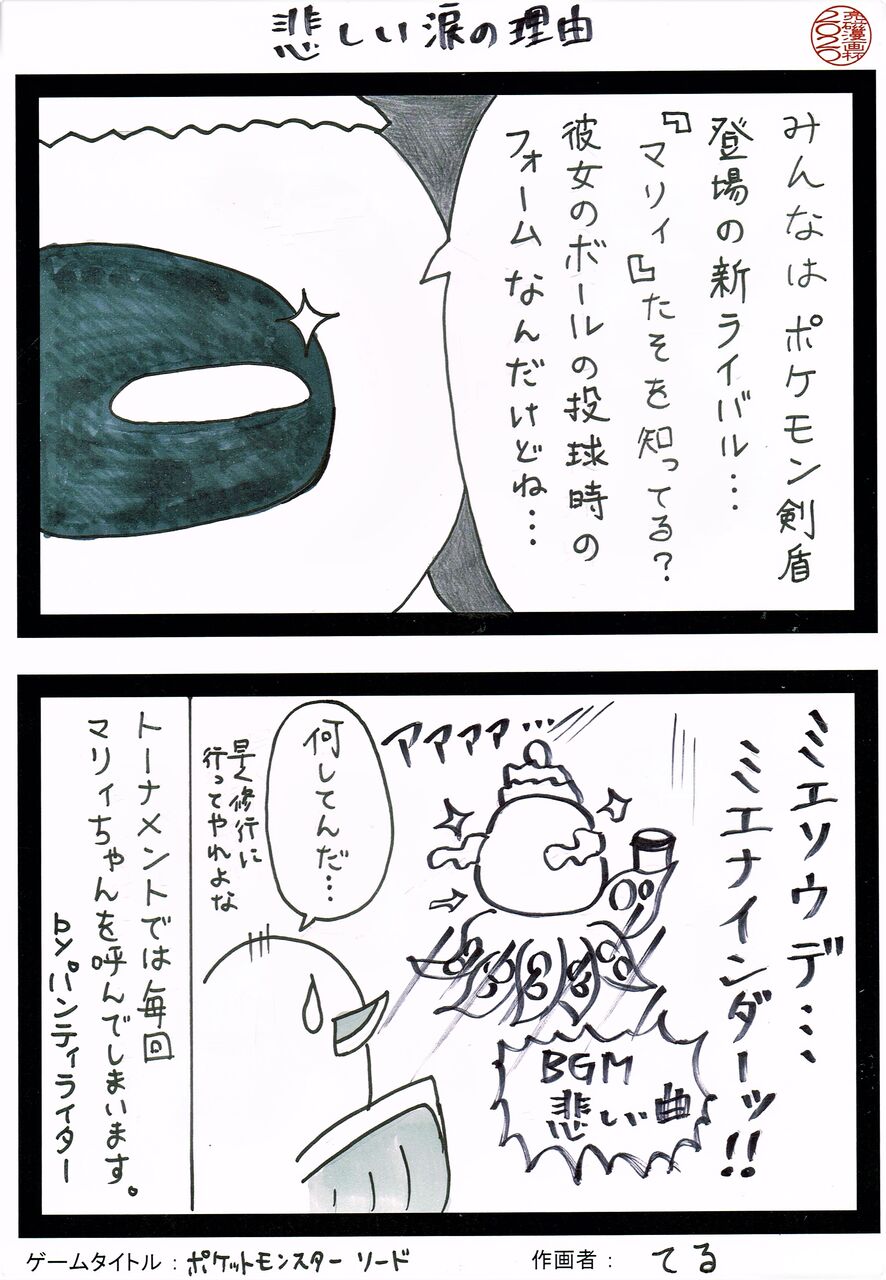 悲しい涙の理由
売礎漫画杯
2020
みんなはポケモン剣盾
登場の新ライバル…
『マリィ』たそを知ってる？
彼女のボールの投球時の
フォームなんだけどね…
ミエソウデ……
ミエナインダーッ!!
アアアア…
BGM
悲しい曲
何してんだ…
早く修行に
行ってやれよな
トーナメントでは毎回
マリィちゃんを呼んでしまいます。
byパンティライター
ゲームタイトル：ポケットモンスター ソード
作画者：てる